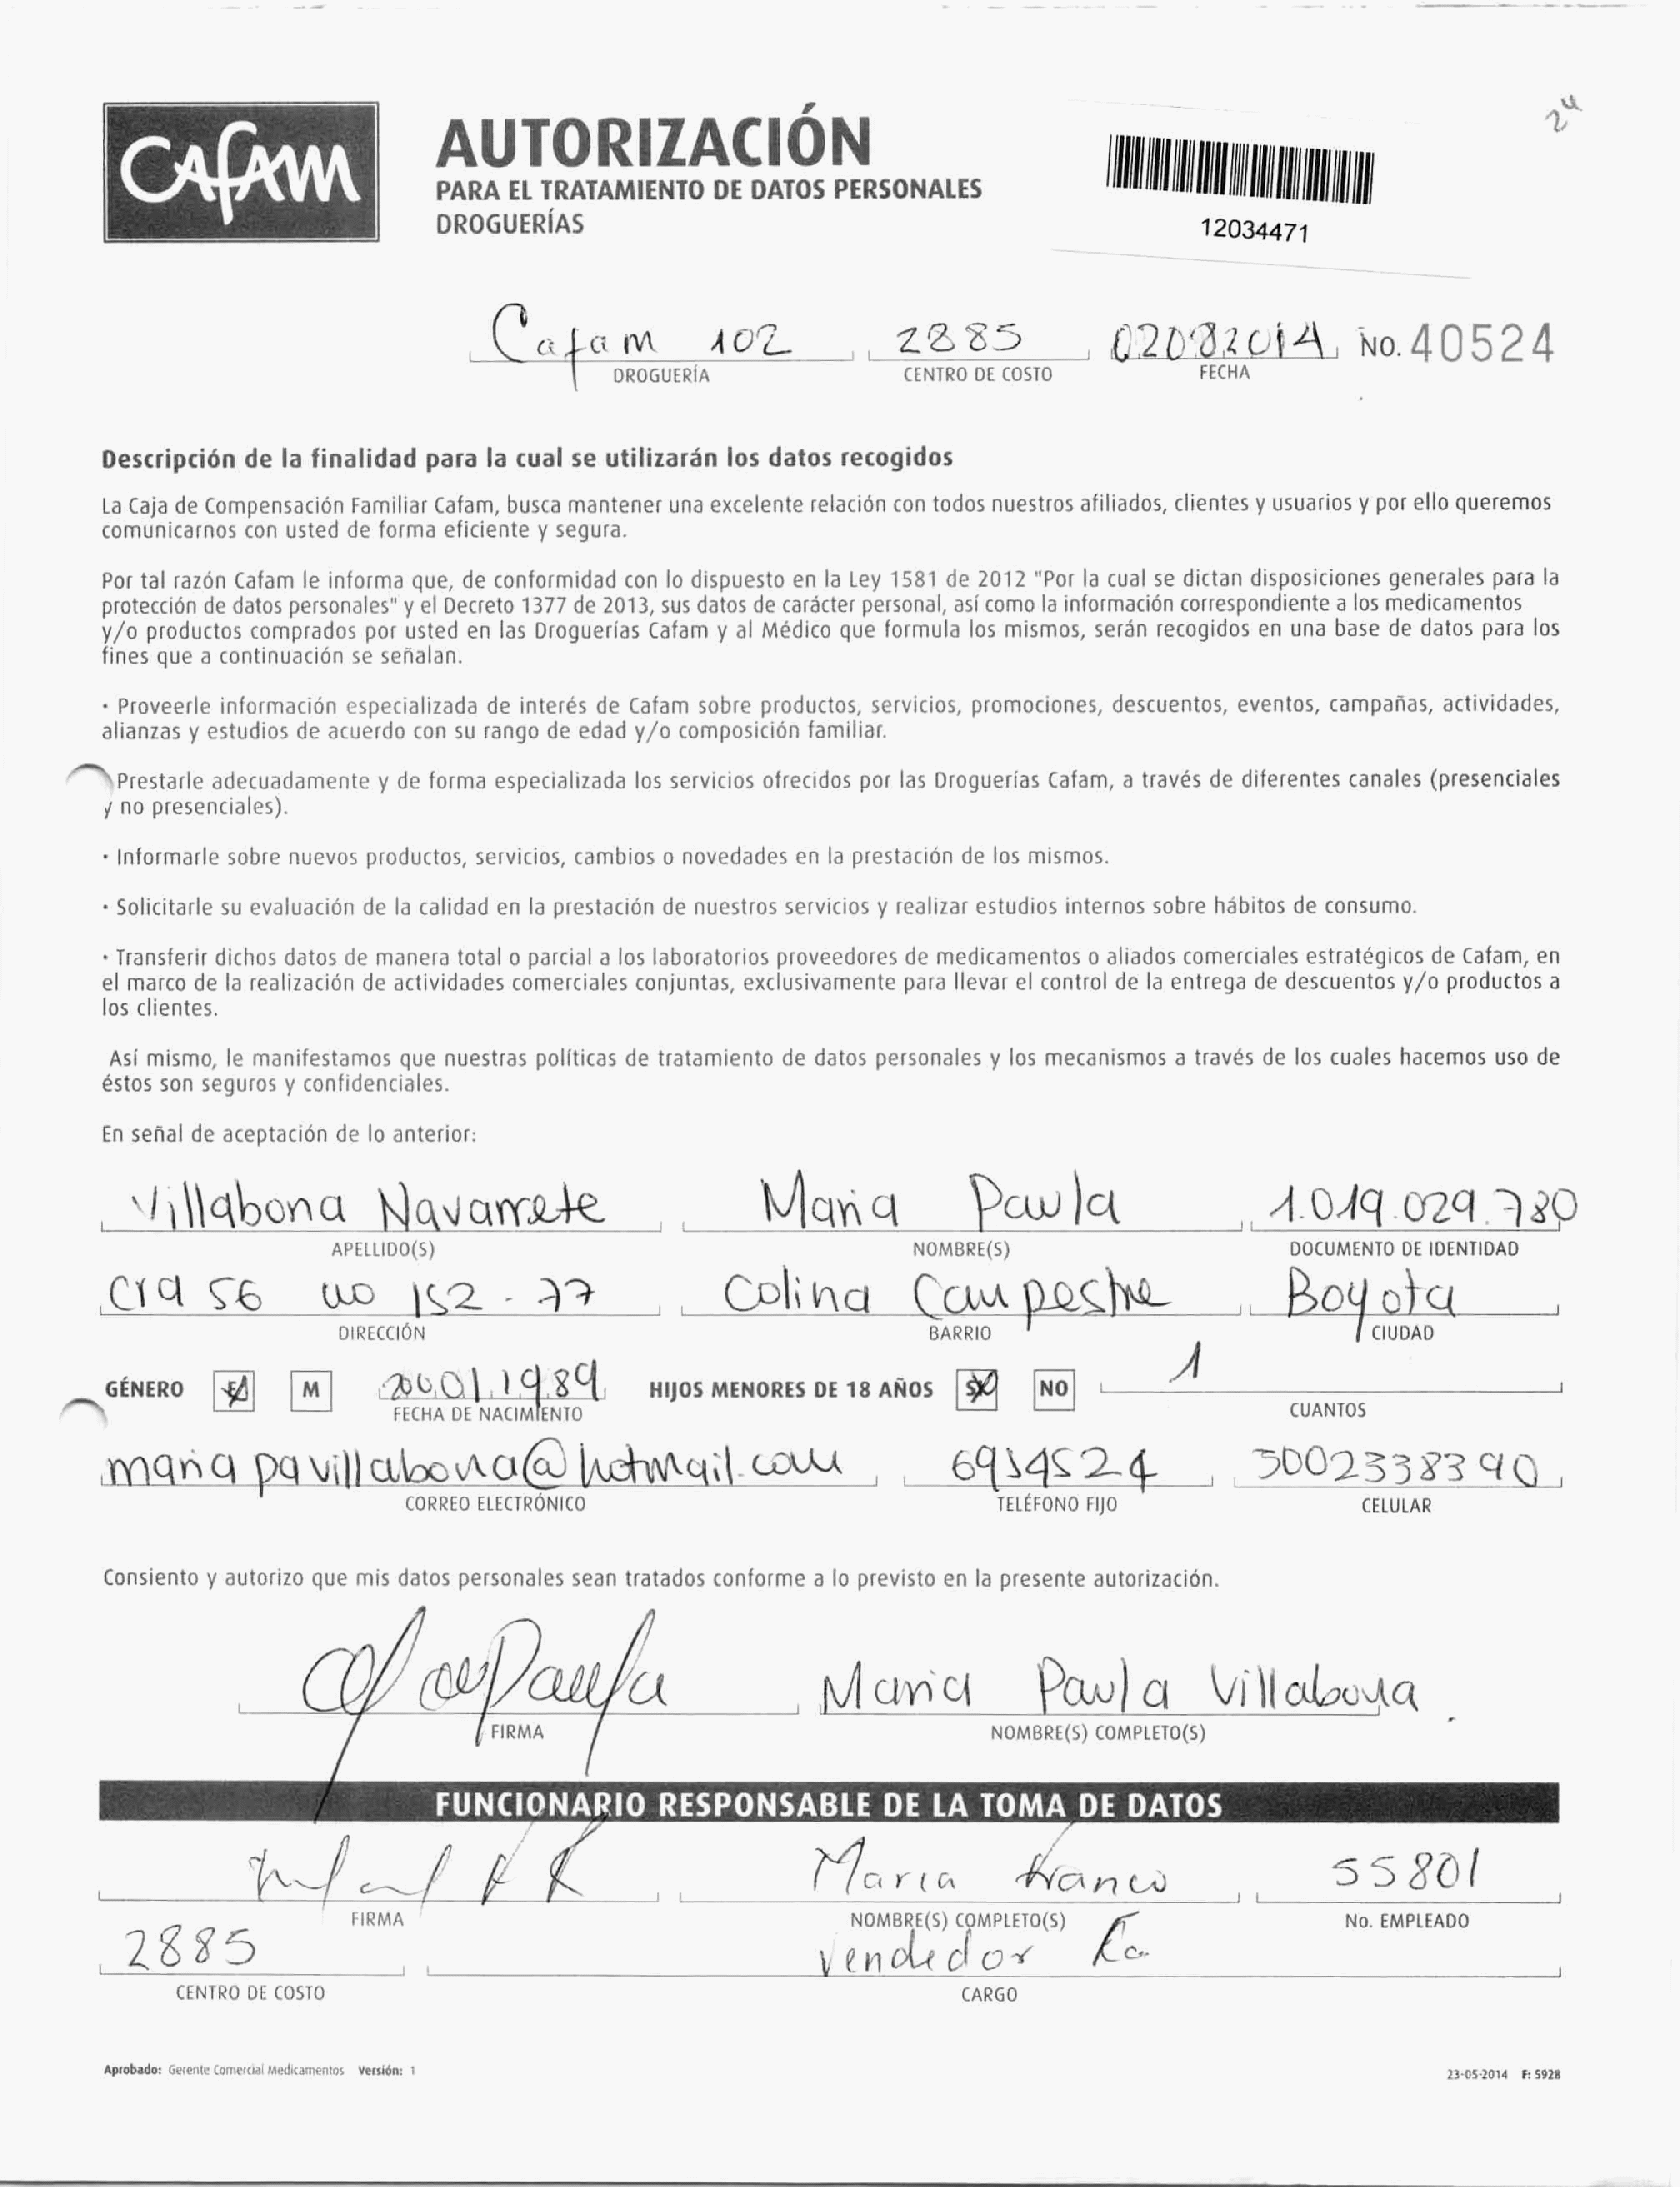 24
CAFAM
AUTORIZACIÓN
PARA EL TRATAMIENTO DE DATOS PERSONALES
DROGUERÍAS
12034471
Cafam 102 2885 02082014 No. 40524
DROGUERÍA CENTRO DE COSTO FECHA
Descripción de la finalidad para la cual se utilizarán los datos recogidos
La Caja de Compensación Familiar Cafam, busca mantener una excelente relación con todos nuestros afiliados, clientes y usuarios y por ello queremos
comunicarnos con usted de forma eficiente y segura.
Por tal razón Cafam le informa que, de conformidad con lo dispuesto en la Ley 1581 de 2012 "Por la cual se dictan disposiciones generales para la
protección de datos personales" y el Decreto 1377 de 2013, sus datos de carácter personal, así como la información correspondiente a los medicamentos
y/o productos comprados por usted en las Droguerías Cafam y al Médico que formula los mismos, serán recogidos en una base de datos para los
fines que a continuación se señalan.
· Proveerle información especializada de interés de Cafam sobre productos, servicios, promociones, descuentos, eventos, campañas, actividades,
alianzas y estudios de acuerdo con su rango de edad y/o composición familiar.
Prestarle adecuadamente y de forma especializada los servicios ofrecidos por las Droguerías Cafam, a través de diferentes canales (presenciales
y no presenciales).
· Informarle sobre nuevos productos, servicios, cambios o novedades en la prestación de los mismos.
· Solicitarle su evaluación de la calidad en la prestación de nuestros servicios y realizar estudios internos sobre hábitos de consumo.
· Transferir dichos datos de manera total o parcial a los laboratorios proveedores de medicamentos o aliados comerciales estratégicos de Cafam, en
el marco de la realización de actividades comerciales conjuntas, exclusivamente para llevar el control de la entrega de descuentos y/o productos a
los clientes.
Así mismo, le manifestamos que nuestras políticas de tratamiento de datos personales y los mecanismos a través de los cuales hacemos uso de
éstos son seguros y confidenciales.
En señal de aceptación de lo anterior:
Villabona Navarrete Maria Paula 1.019.029.780
APELLIDO(S) NOMBRE(S) DOCUMENTO DE IDENTIDAD
cra 56 no 152 - 77 Colina Campestre Bogota
DIRECCIÓN BARRIO CIUDAD
GÉNERO F M 20011989 HIJOS MENORES DE 18 AÑOS SI NO 1
FECHA DE NACIMIENTO CUANTOS
mariapavillabona@hotmail.com 6934524 3002338390
CORREO ELECTRÓNICO TELÉFONO FIJO CELULAR
Consiento y autorizo que mis datos personales sean tratados conforme a lo previsto en la presente autorización.
Maria Paula Villabona.
FIRMA NOMBRE(S) COMPLETO(S)
FUNCIONARIO RESPONSABLE DE LA TOMA DE DATOS
Maria Franco 55801
FIRMA NOMBRE(S) COMPLETO(S) No. EMPLEADO
2885 Vendedor
CENTRO DE COSTO CARGO
Aprobado: Gerente Comercial Medicamentos Versión: 1 23-05-2014 F: 5928